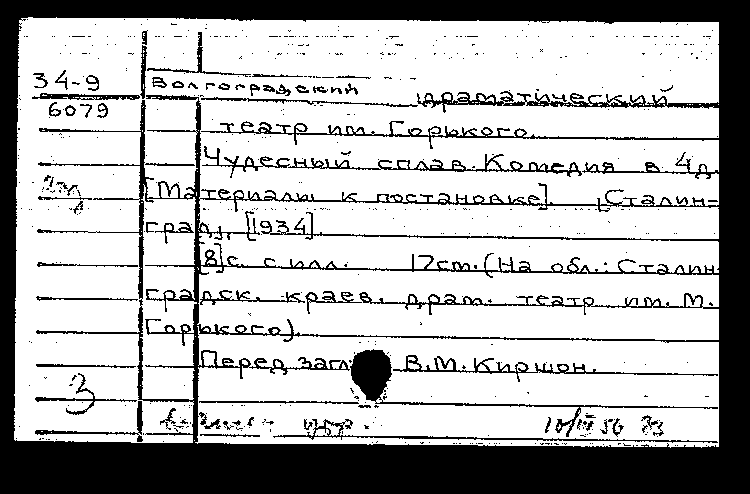 34-9 Волгоградский драматический
6079 театр им. Горького.
Чудесный сплав. Комедия в 4д.
[Материалы к постановке]. [Сталин=
град], [1934].
[8]с. с илл. 17см. (На обл.: Сталин-
градск. краев. драм. театр им. М.
Горького).
Перед загл. В.М. Киршон.
3